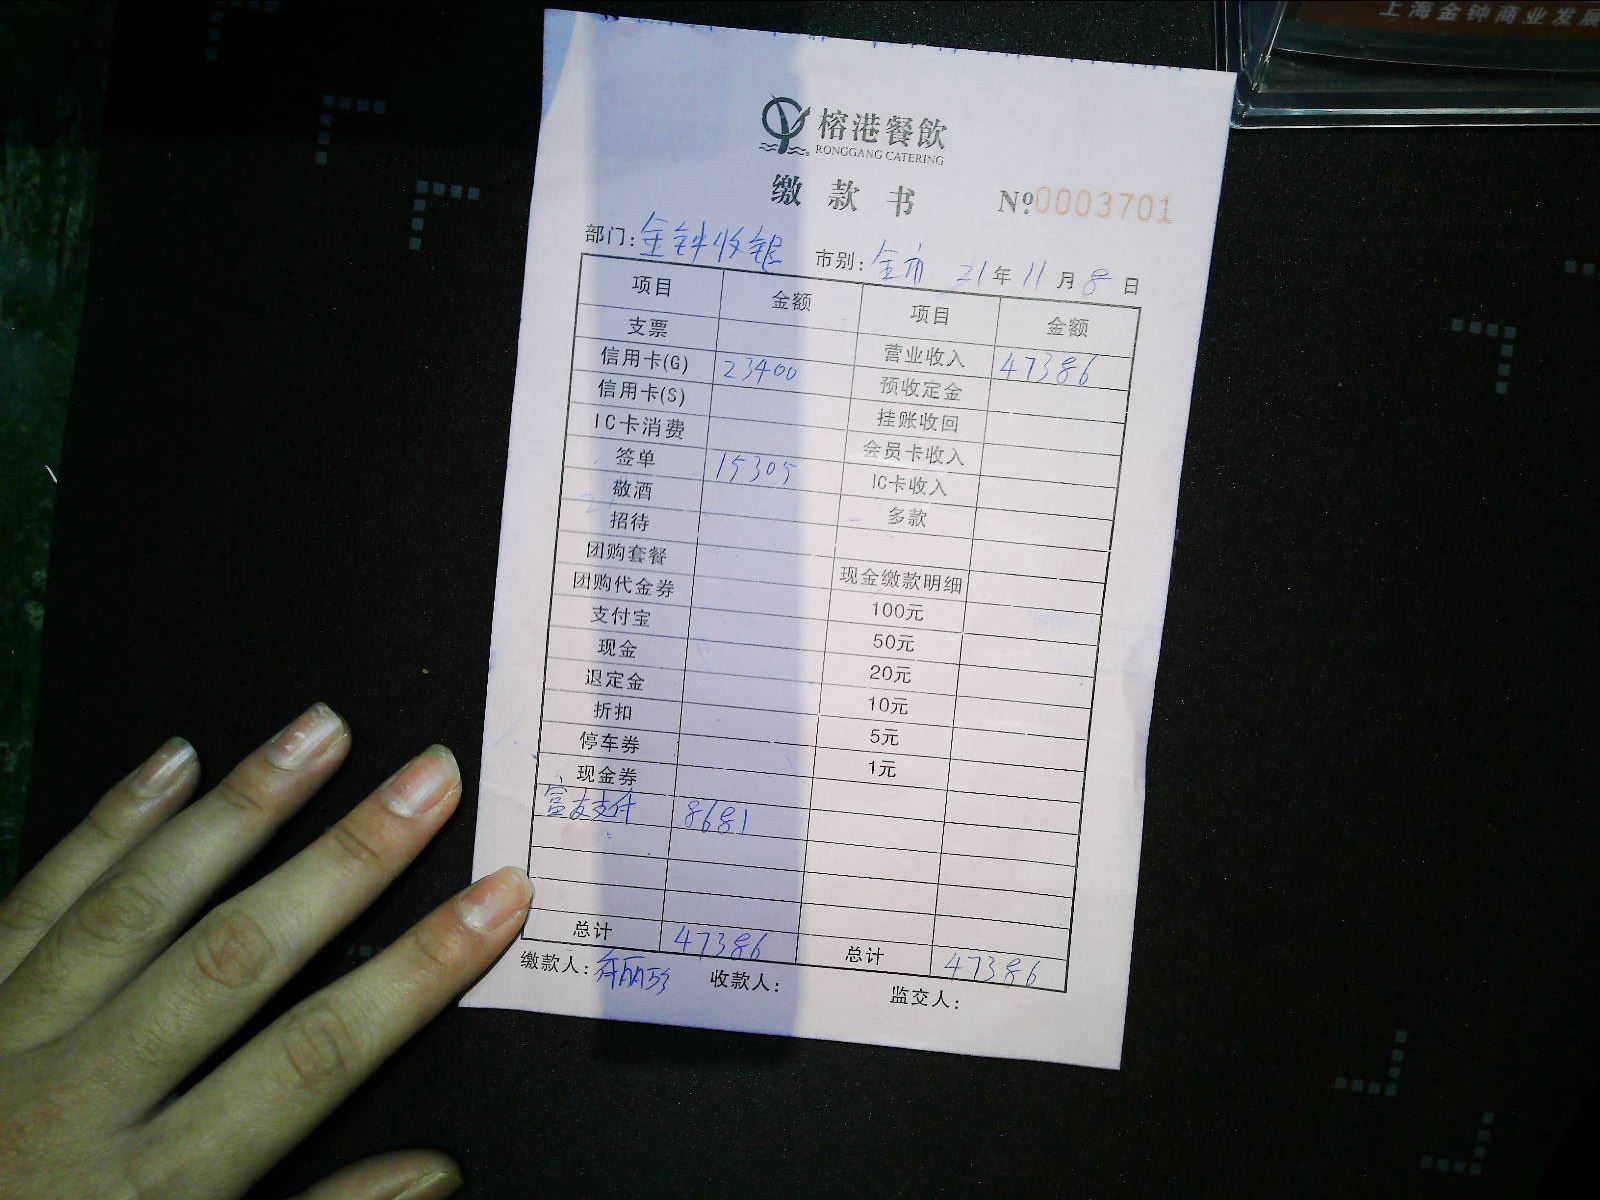 上海金钟商业发展
榕港餐飲
RONGGANG CATERING
缴 款 书 №0003701
部门: 金钟收银 市别: 全市 21年11月8日
项目 金额 项目 金额
支票 营业收入 47386
信用卡(G) 23400 预收定金
信用卡(S) 挂账收回
IC卡消费 会员卡收入
签单 15305 IC卡收入
敬酒 多款
招待
团购套餐 现金缴款明细
团购代金券 100元
支付宝 50元
现金 20元
退定金 10元
折扣 5元
停车券 1元
现金券
富友支付 8681
总计 47386 总计 47386
缴款人: 丽珍 收款人: 监交人: